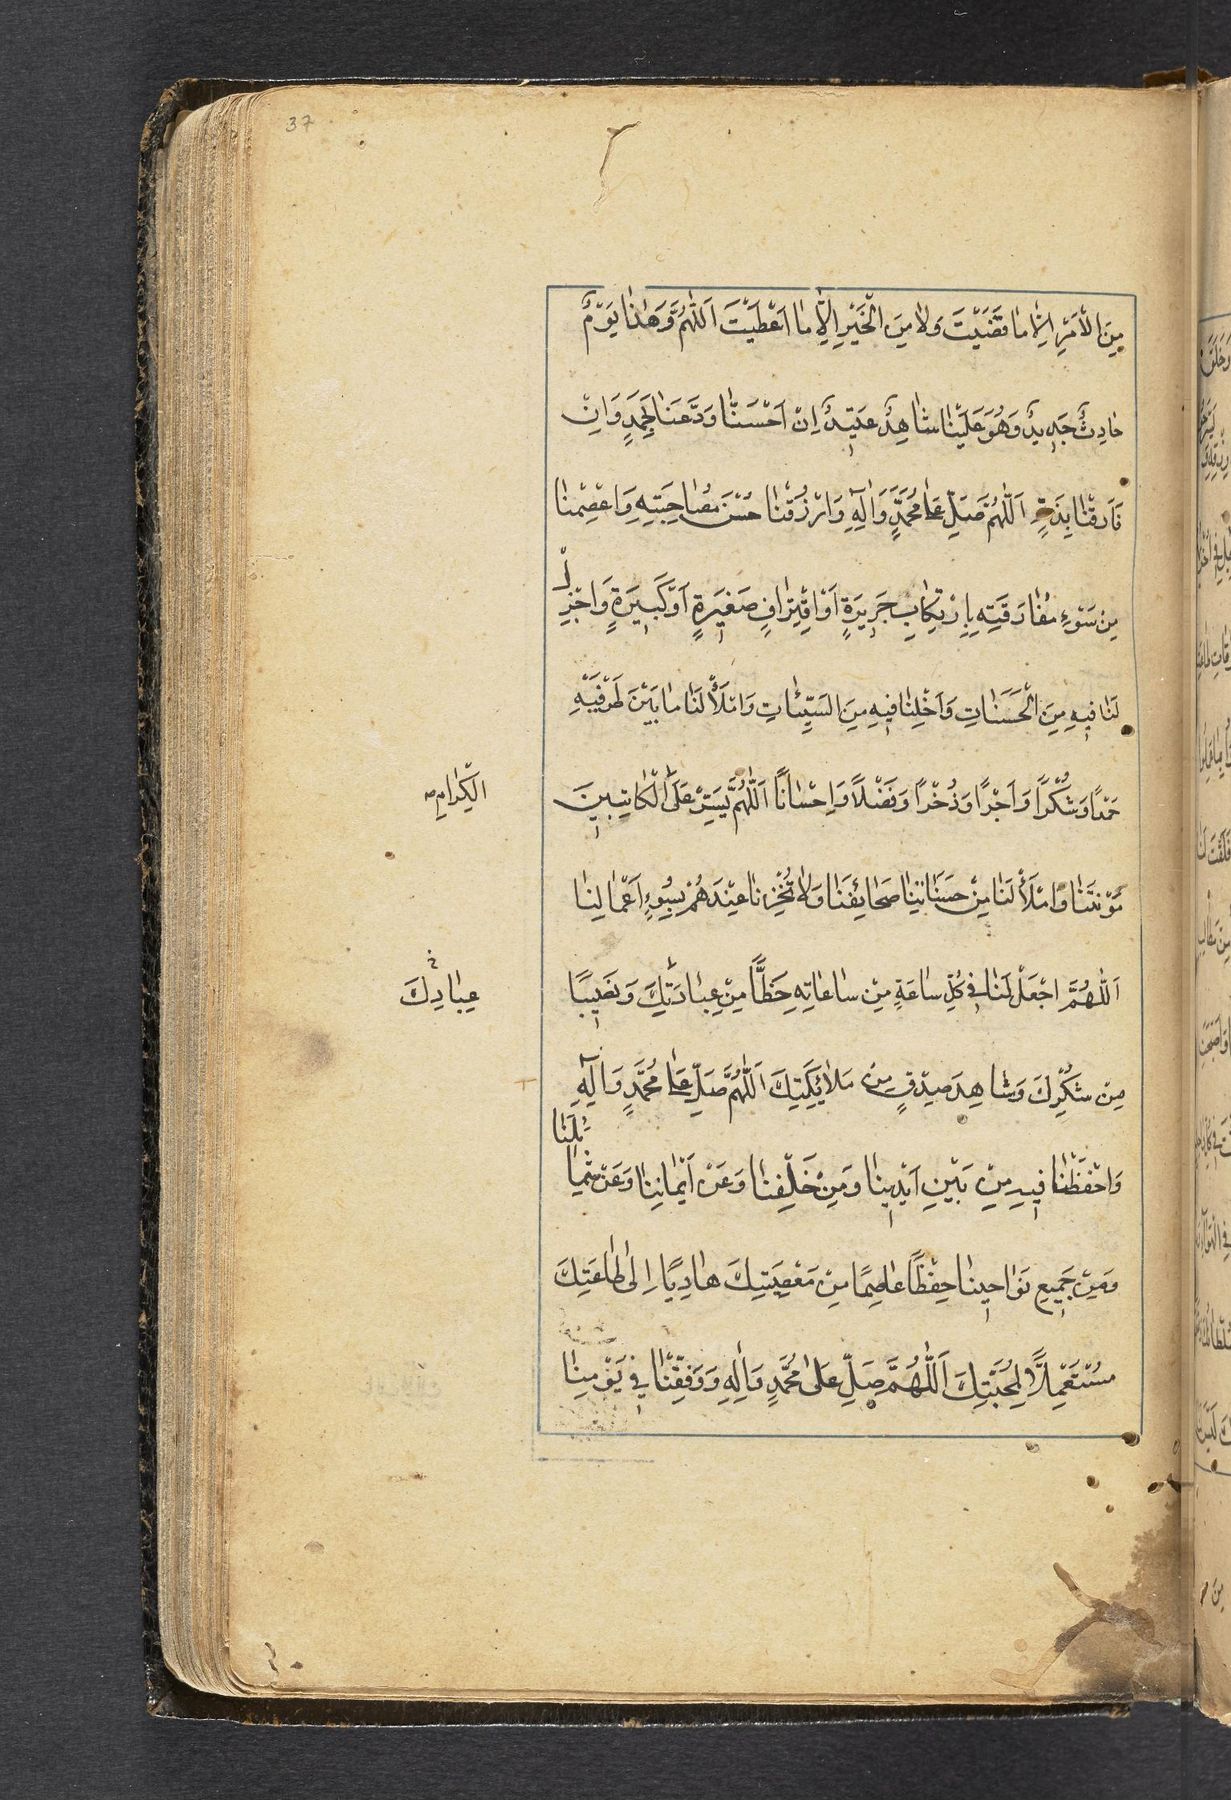 37
مِنَ الْاَمْرِ اِلَّا مَا قَضَيْتَ وَلَا مِنَ الْخَيْرِ اِلَّا مَا اَعْطَيْتَ اَللّٰهُمَّ وَهٰذَا يَوْمٌ
حَادِثٌ جَدِيدٌ وَهُوَ عَلَيْنَا شَاهِدٌ عَتِيدٌ اِنْ اَحْسَنَّا وَدَّعَنَا بِحَمْدٍ وَاِنْ
فَارَقْنَا بِذَمٍّ اَللّٰهُمَّ صَلِّ عَلٰى مُحَمَّدٍ وَاٰلِهِ وَارْزُقْنَا حُسْنَ مُصَاحَبَتِهِ وَاعْصِمْنَا
مِنْ سُوْءِ مُفَارَقَتِهِ بِارْتِكَابِ جَرِيرَةٍ اَوْ اقْتِرَافِ صَغِيرَةٍ اَوْ كَبِيرَةٍ وَاَجْزِلْ
لَنَا فِيهِ مِنَ الْحَسَنَاتِ وَاَخْلِنَا فِيهِ مِنَ السَّيِّئَاتِ وَامْلَأْ لَنَا مَا بَيْنَ طَرَفَيْهِ
حَمْدًا وَشُكْرًا وَاَجْرًا وَذُخْرًا وَفَضْلًا وَاِحْسَانًا اَللّٰهُمَّ يَسِّرْ عَلَى الْكَاتِبِينَ
الْكِرَامِ صح
مَؤُنَتَنَا وَامْلَأْ لَنَا مِنْ حَسَنَاتِنَا صَحَائِفَنَا وَلَا تُخْزِنَا عِنْدَهُمْ بِسُوْءِ اَعْمَالِنَا
اَللّٰهُمَّ اجْعَلْ لَنَا فِي كُلِّ سَاعَةٍ مِنْ سَاعَاتِهِ حَظًّا مِنْ عِبَادَتِكَ وَنَصِيبًا
عِبَادِكَ خ
مِنْ شُكْرِكَ وَشَاهِدَ صِدْقٍ مِنْ مَلَائِكَتِكَ اَللّٰهُمَّ صَلِّ عَلٰى مُحَمَّدٍ وَاٰلِهِ
وَاحْفَظْنَا فِيهِ مِنْ بَيْنِ اَيْدِينَا وَمِنْ خَلْفِنَا وَعَنْ اَيْمَانِنَا وَعَنْ شَمَائِلِنَا
وَمِنْ جَمِيعِ نَوَاحِينَا حِفْظًا عَاصِمًا مِنْ مَعْصِيَتِكَ هَادِيًا اِلٰى طَاعَتِكَ
مُسْتَعْمِلًا لِمَحَبَّتِكَ اَللّٰهُمَّ صَلِّ عَلٰى مُحَمَّدٍ وَاٰلِهِ وَوَفِّقْنَا فِي يَوْمِنَا